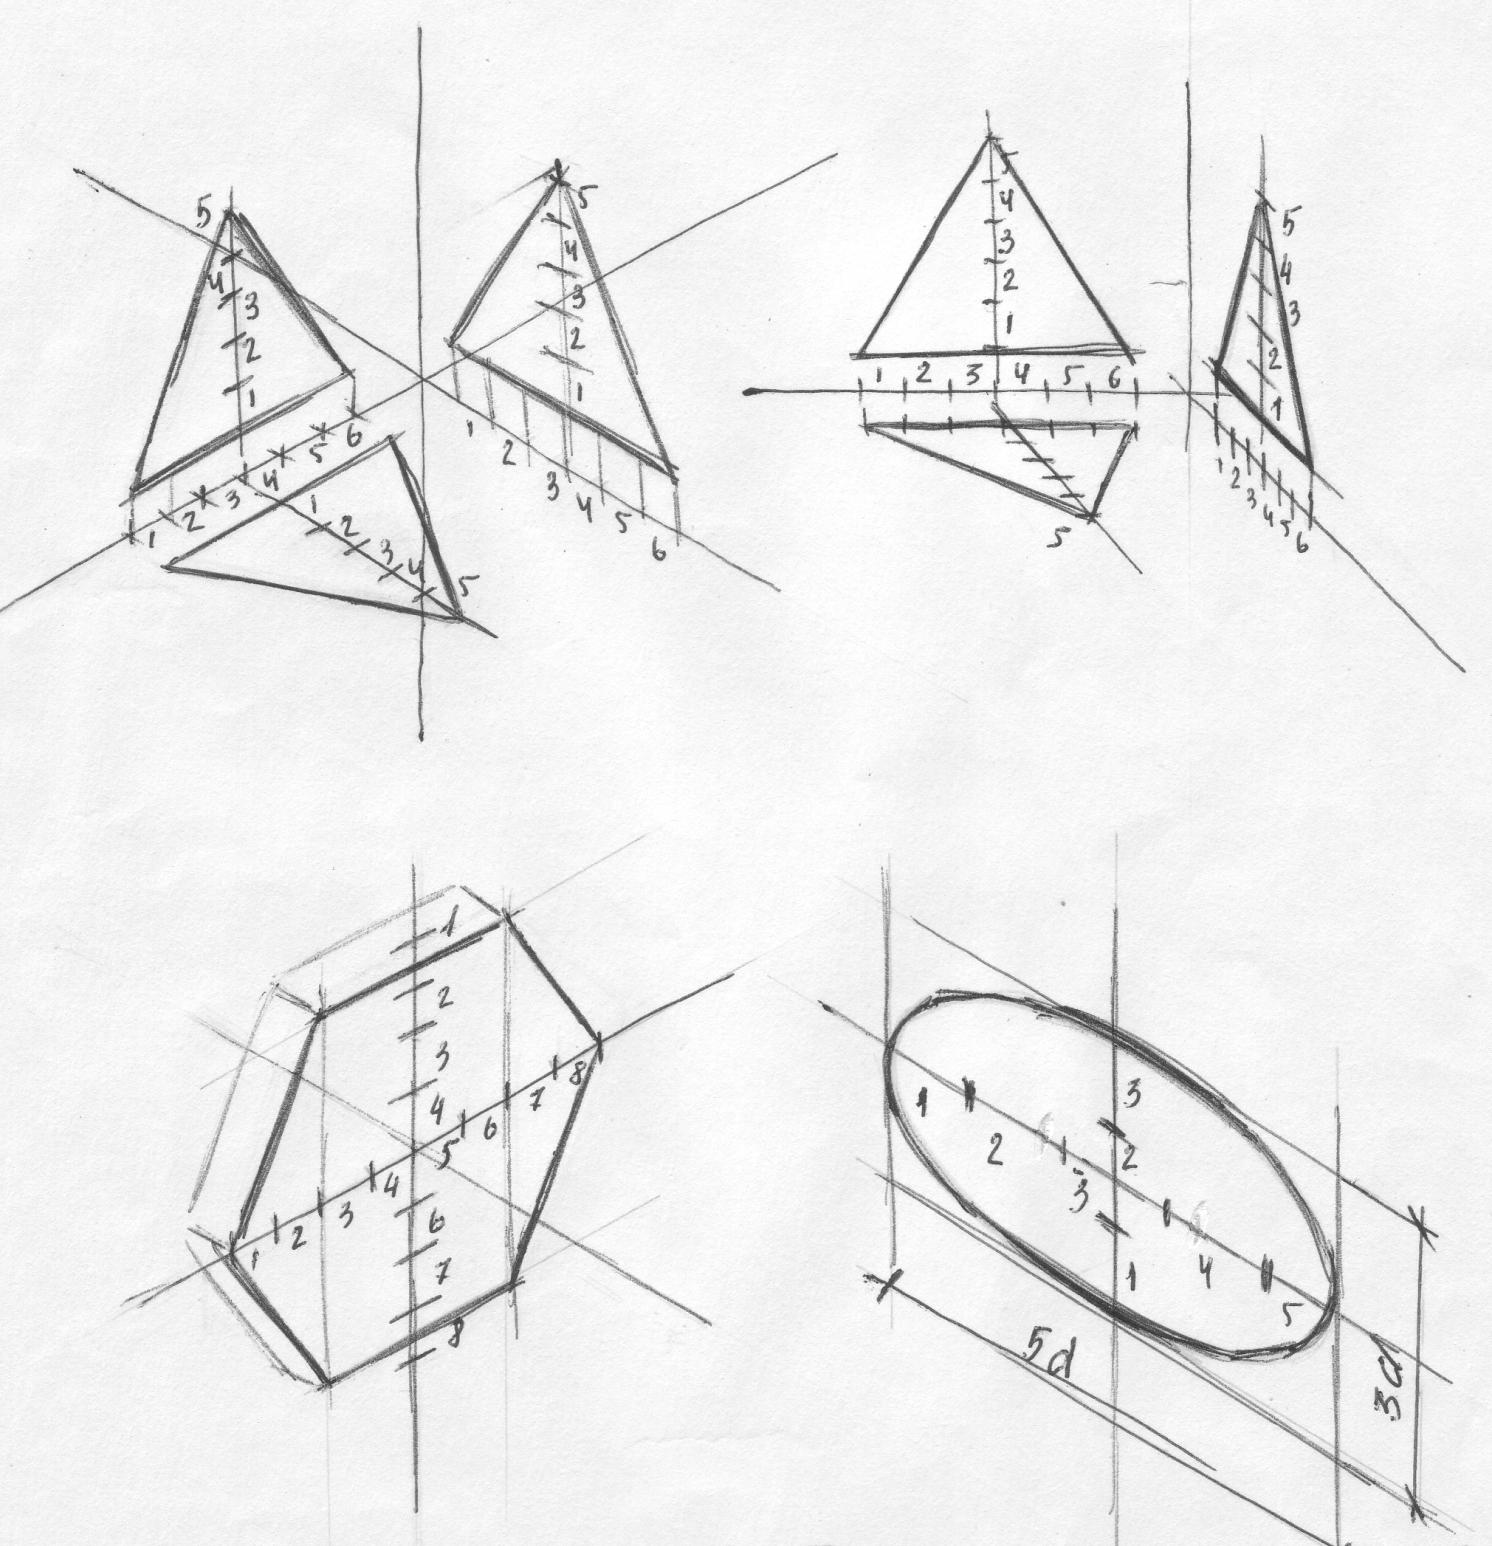 5 4 3 2 1
1 2 3 4 5 6
1 2 3 4 5
5 4 3 2 1
1 2 3 4 5 6
5 4 3 2 1
1 2 3 4 5 6
5
5 4 3 2 1
1 2 3 4 5 6
1 2 3 4 5 6 7 8
1 2 3 4 6 7 8
3 2 1
1 2 3 4 5
5d
3d